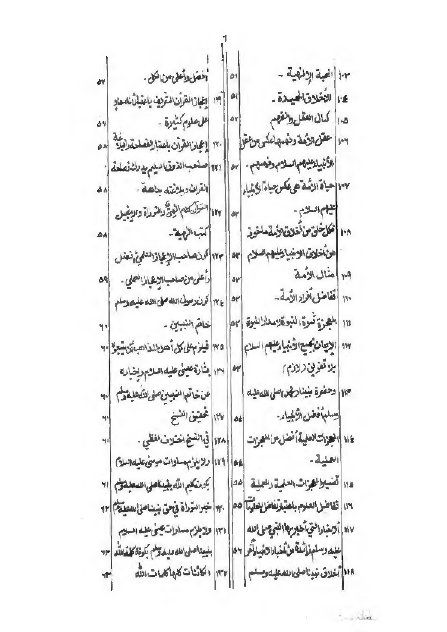 ٦
١٠٣ المحبة الإلهية - ٥١
١٠٤ الأخلاق الحميدة - ٥٢
١٠٥ كمال العقل والفهم ٥٢
١٠٦ عقل الأمة وفهمها عكس من عقل
الأنبياء عليهم السلام وفهمهم - ٥٢
١٠٧ حياة الأمة هي عكس حياة الأنبياء
عليهم السلام - ٥٢
١٠٨ فكل خلق من أخلاق الأمة مأخوذ
من أخلاق الأنبياء عليهم السلام ٥٣
١٠٩ مثال الأمة ٥٣
١١٠ تفاضل أفراد الأمة - ٥٣
١١١ المعجزة ثمرة النبوة
١١٢ الإيمان بجميع الأنبياء عليهم السلام
١١٣ وحضرة نبينا صلى الله عليه
وسلم أفضل الأنبياء - ٥٤
١١٤ المعجزات العلمية أفضل من المعجزات
العملية - ٥٤
١١٥ تفسير المعجزات العلمية والعملية ٥٥
١١٦ تفاضل العلوم باعتبار تفاضل
١١٧ الأخبار التي أخبر بها النبي صلى الله
عليه وسلم ٥٦
١١٨ أخلاق نبينا صلى الله عليه وسلم
أفضل وأعلى من الكل - ٥٧
١١٩ إعجاز القرآن الشريف باعتبار
على علوم كثيرة - ٥٧
١٢٠ إعجاز القرآن باعتبار الفصاحة والبلاغة ٥٨
١٢١ صاحب الذوق السليم يدرك فصاحة
القرآن وبلاغته بداهة - ٥٨
١٢٢ والتوراة والإنجيل
كتب إلهية - ٥٨
١٢٣ كون صاحب الإعجاز العلمي أفضل
وأعلى من صاحب الإعجاز العملي - ٥٩
١٢٤ كون رسول الله صلى الله عليه وسلم
خاتم النبيين - ٦٠
١٢٥ فيلزم على كل أهل ٦٠
١٢٦ بشارة عيسى عليه السلام وإخباره
عن خاتم النبيين صلى الله عليه وسلم ٦٠
١٢٧ تحقيق النسخ ٦٠
١٢٨ في النسخ اختلاف لفظي - ٦١
١٢٩ ولا يلزم مساوات موسى عليه السلام
نبينا صلى الله عليه وسلم ٦١
١٣٠ خبر التوراة في حق نبينا صلى الله عليه وسلم ٦٢
١٣١ ولا يلزم مساوات عيسى عليه السلام
نبينا صلى الله عليه وسلم بكونه كلمة الله ٦٣
١٣٢ الكائنات كلها كلمات الله ٦٣